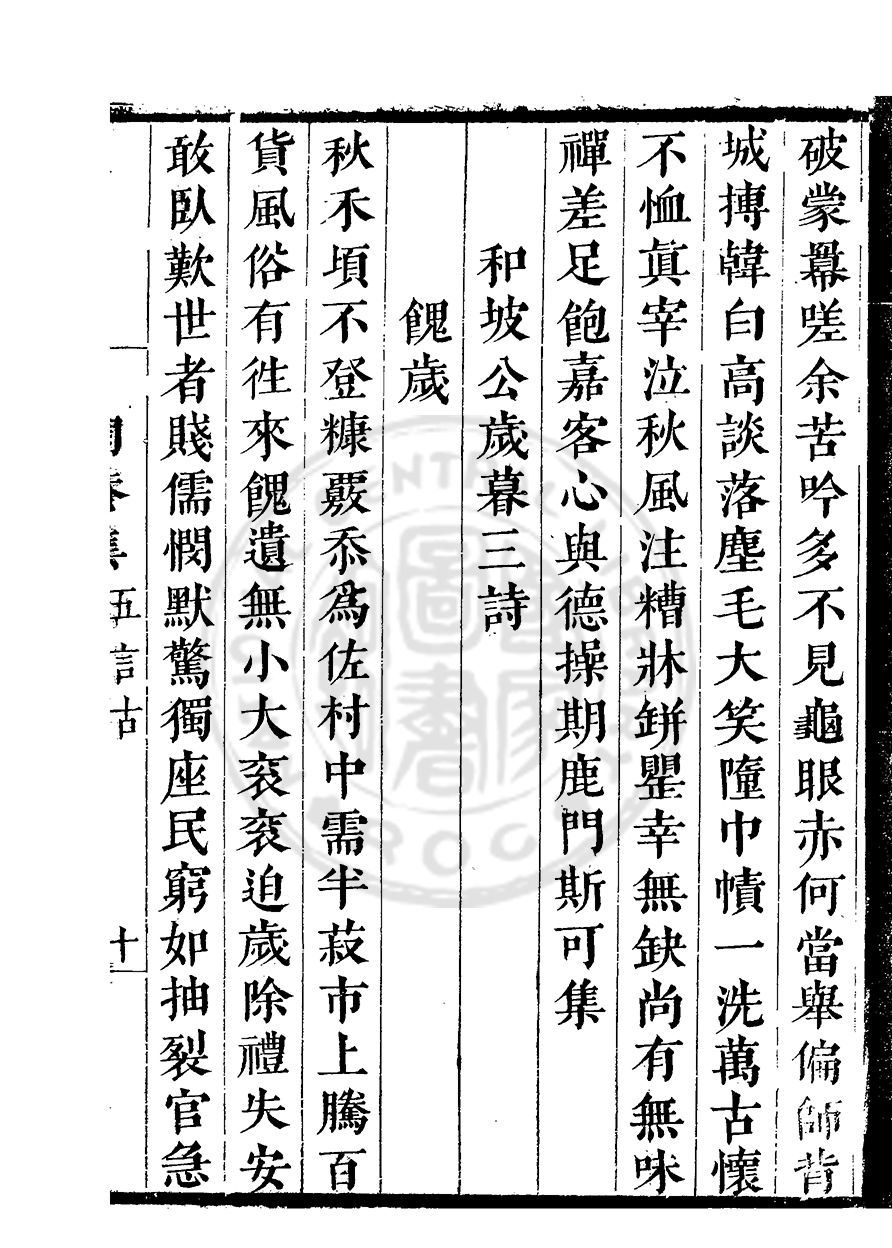 破蒙冪嗟余苦吟多不見龜眼赤何當舉偏師背
城摶韓白高談落麈毛大笑墮巾幘一洗萬古懷
不恤眞宰泣秋風注糟牀缾罌幸無缺尚有無味
禪差足飽嘉客心與德操期鹿門斯可集
和坡公歲暮三詩
餽歲
秋禾頃不登糠覈忝爲佐村中需半菽市上騰百
貨風俗有徃來餽遺無小大衮衮迫歲除禮失安
敢臥歎世者賤儒憫默驚獨座民窮如抽裂官急
五言古
十